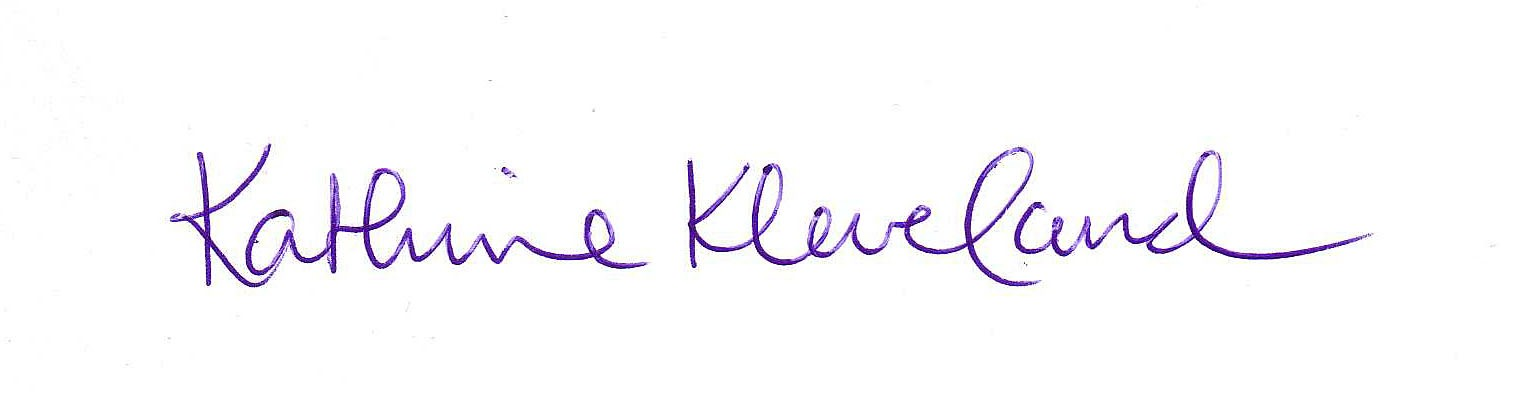 Kathrine Kleveland